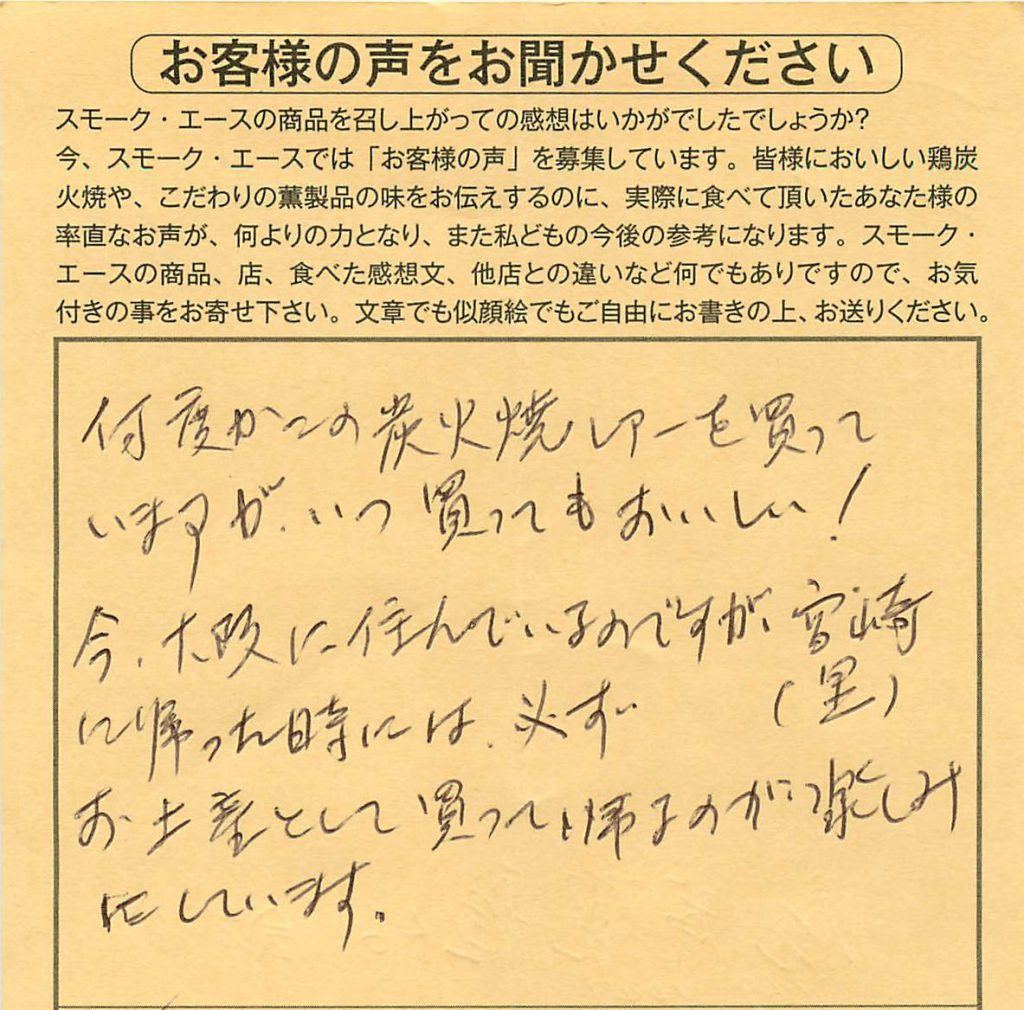 お客様の声をお聞かせください
スモーク・エースの商品を召し上がっての感想はいかがでしたでしょうか？
今、スモーク・エースでは「お客様の声」を募集しています。皆様においしい鶏炭
火焼や、こだわりの薫製品の味をお伝えするのに、実際に食べて頂いたあなた様の
率直なお声が、何よりの力となり、また私どもの今後の参考になります。スモーク・
エースの商品、店、食べた感想文、他店との違いなど何でもありですので、お気
付きの事をお寄せ下さい。文章でも似顔絵でもご自由にお書きの上、お送りください。
何度かこの炭火焼レアーを買って
いますが、いつ買ってもおいしい！
今、大阪に住んでいるのですが、宮崎
（里）
に帰った時には、必ず
お土産として買って帰るのが楽しみ
にしています。